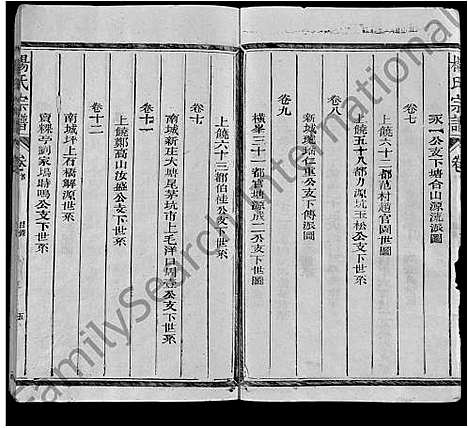 楊氏宗譜 卷
永一公支下塘合山源流派圖
卷七
上饒六十二都范村趙官園世圖
上饒五十八都力源坑玉松公支下世系
卷八
新城塊塘仁重公支下傳派圖
卷九
橫峯三十一都官塘源成二公支下世圖
上饒六十三都伯佳公支下世系
卷十
南城新庄大塘尾茅坑市上毛洋口周壹公支下世系
卷十一
上饒鄭高山汝盛公支下世系
卷十二
南城坪上石橋解源世系
貴溪劉家塢時鳴公支下世系
楊氏宗譜 卷首
目錄
五
FamilySearch International